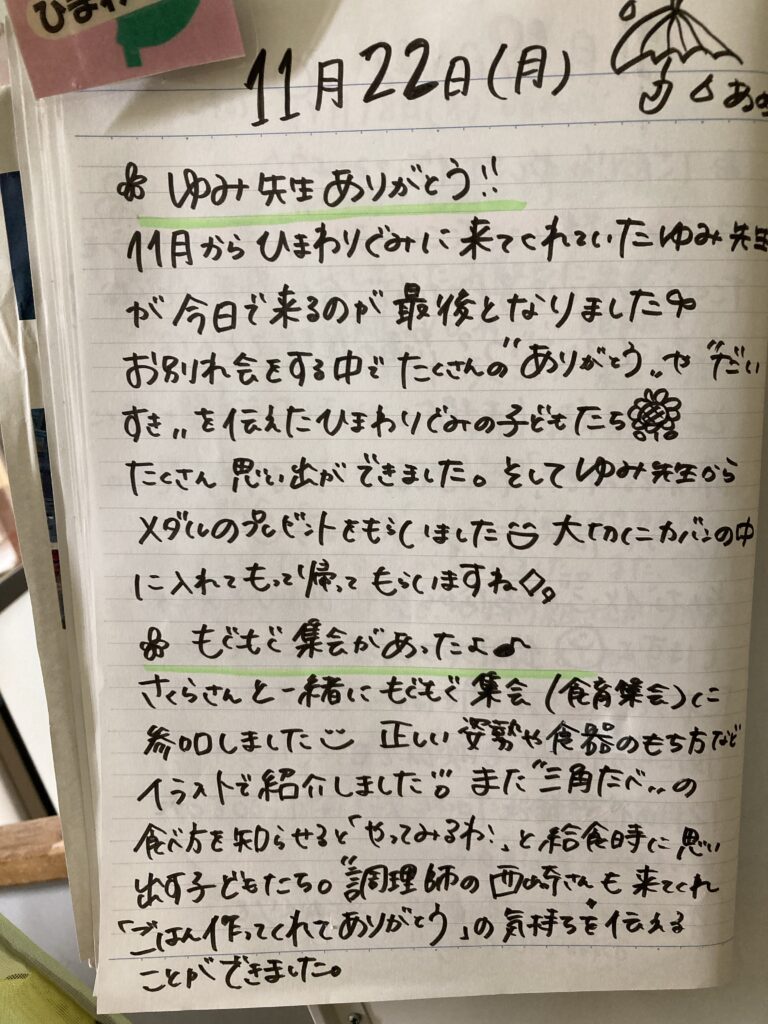 ひまわ
11月22日(月)
ゆみ先生ありがとう!!
11月からひまわりぐみに来てくれていたゆみ先生
が今日で来るのが最後となりました
お別れ会をする中でたくさんの"ありがとう"や"だい
すき"を伝えたひまわりぐみの子どもたち
たくさん思い出ができました。そしてゆみ先生から
メダルのプレゼントをもらいました 大切にカバンの中
に入れてもって帰ってもらいますね
もぐもぐ集会があったよ♪
さくらさんと一緒にもぐもぐ集会(食育集会)に
参加しました 正しい姿勢や食器のもち方など
イラストで紹介しました。また"三角たべ"の
食べ方を知らせると「やってみるわ!」と給食時に思い
出す子どもたち。調理師の西崎さんも来てくれ
「ごはん作ってくれてありがとう」の気持ちを伝える
ことができました。